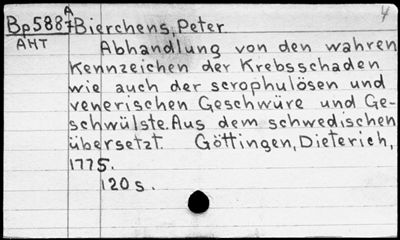 A
Bp5887 Bierchens, Peter.
AHT Abhandlung von den wahren
Kennzeichen der Krebsschaden
wie auch der scrophulösen und
venerischen Geschwüre und Ge-
schwülste. Aus dem schwedischen
übersetzt. Göttingen, Dieterich,
1775.
120 s.